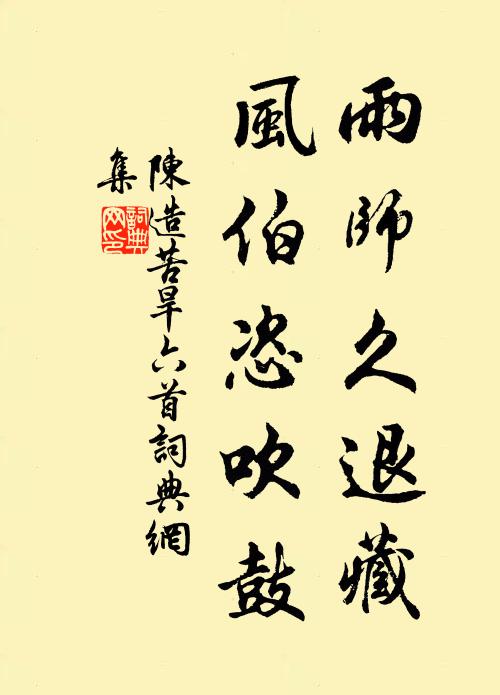 雨師久退藏
風伯恣吹鼓
陳造苦旱六首詞典網
集
詞典
网印